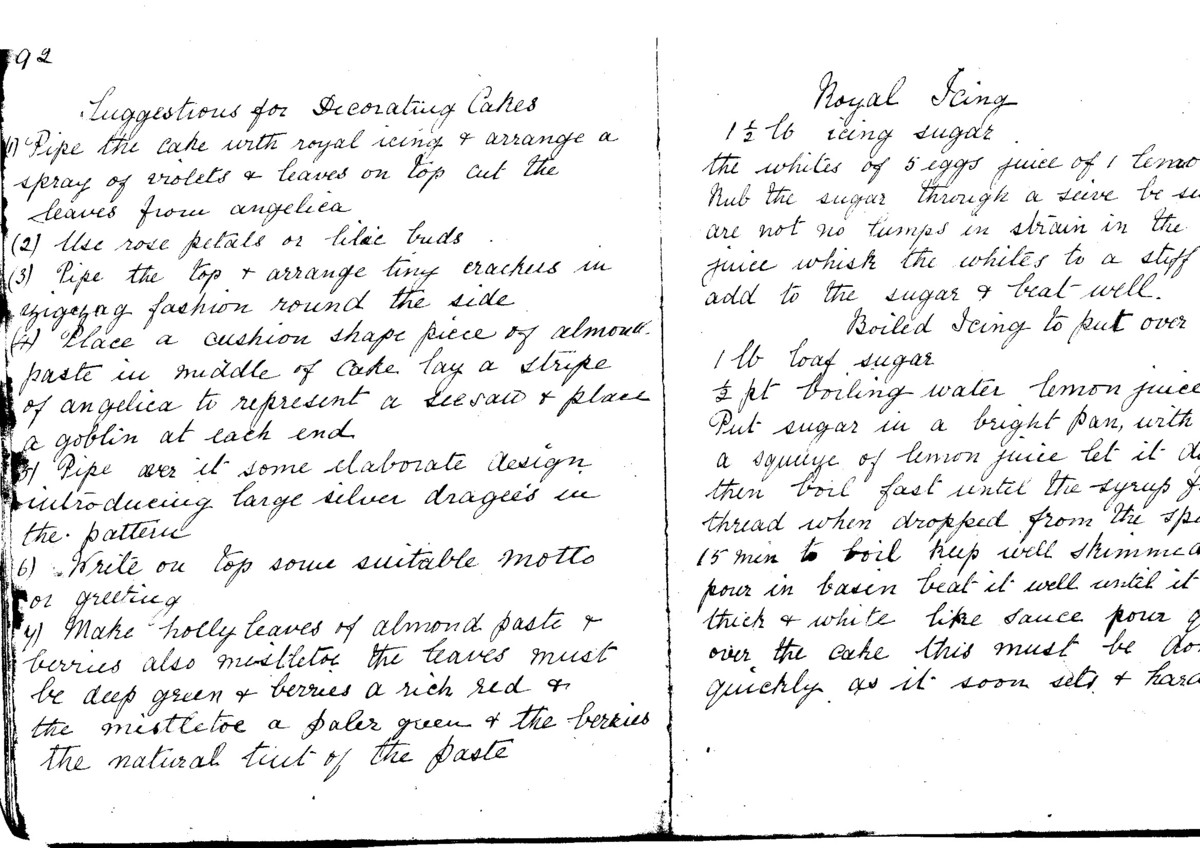 92
Suggestions for Decorating Cakes
(1) Pipe the cake with royal icing & arrange a
spray of violets & leaves on top cut the
leaves from angelica
(2) Use rose petals or lilac buds
(3) Pipe the top & arrange tiny crackers in
zigzag fashion round the side
(4) Place a cushion shape piece of almond
paste in middle of cake lay a stripe
of angelica to represent a seesaw & place
a goblin at each end
5) Pipe over it some elaborate design
introducing large silver drageés in
the pattern
6) Write on top some suitable motto
or greeting
7) Make holly leaves of almond paste &
berries also mistletoe the leaves must
be deep green & berries a rich red &
the mistletoe a paler green & the berries
the natural tint of the paste
Royal Icing
1 ½ lb icing sugar
the whites of 5 eggs juice of 1 lemo
Rub the sugar through a seive be su
are not no lumps in strain in the
juice whisk the whites to a stiff
add to the sugar & beat well.
Boiled Icing to put over
1 lb loaf sugar
½ pt boiling water lemon juice
Put sugar in a bright pan, with
a squeeze of lemon juice let it d
then boil fast until the syrup
thread when dropped from the spo
15 min to boil keep well skimmed
pour in basin beat it well until it
thick & white like sauce pour q
over the cake this must be don
quickly as it soon sets & hard